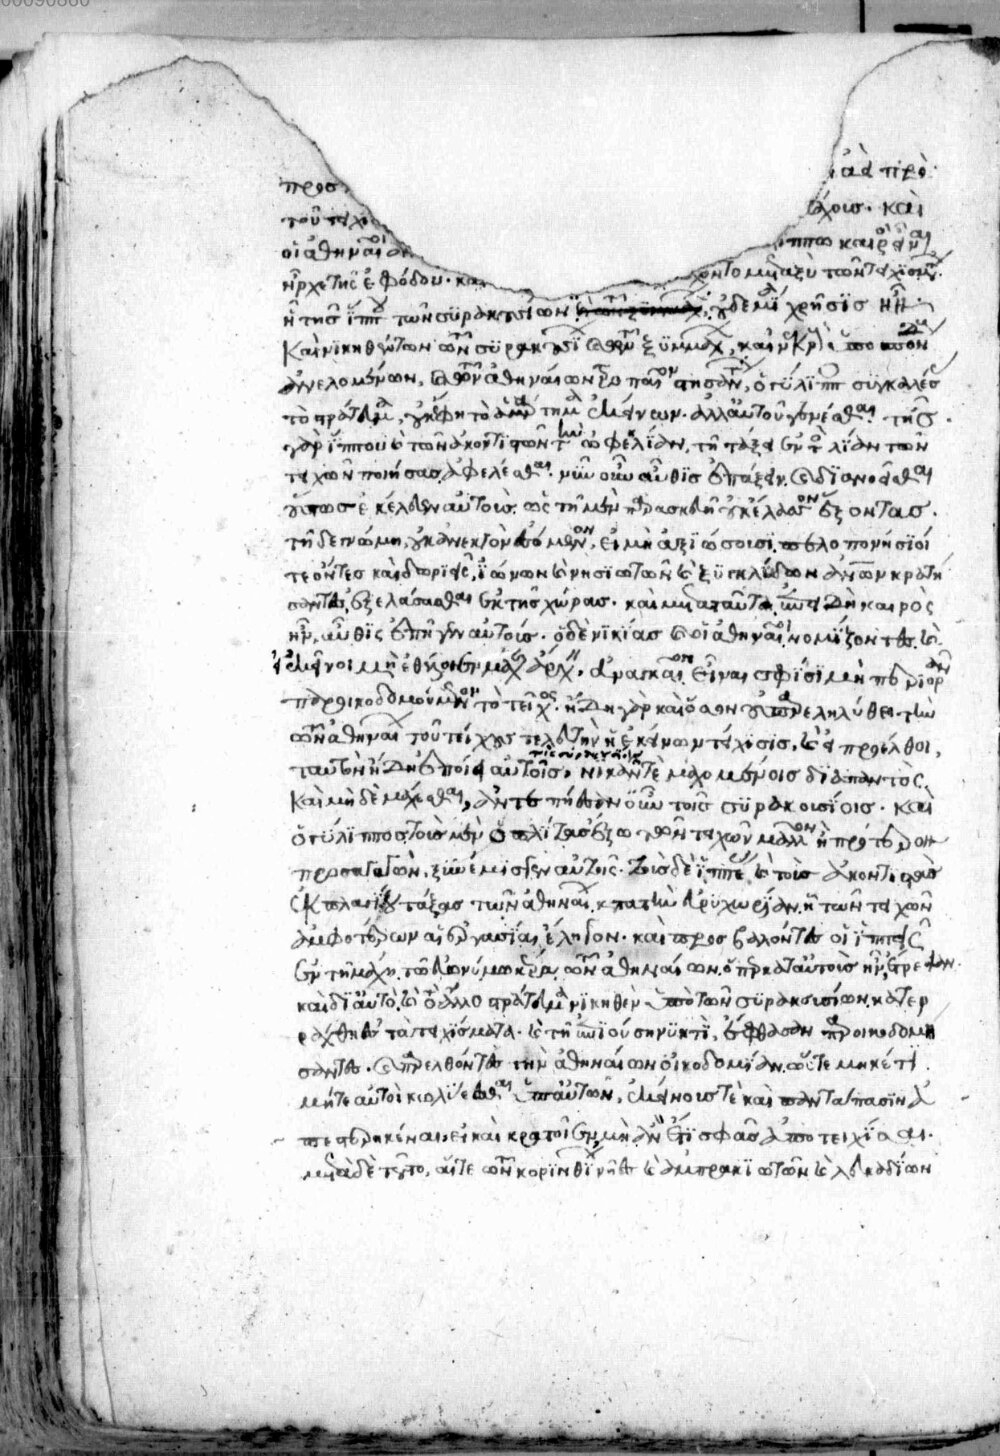 προσ
ἐὰς πρὸ
τοῦ τειχί
είχοις. καὶ
οἱ ἀθηναῖοι ἀν
ίππω καιρὸς εἶναι,
ἦρχε τῆς ἐφόδου. και
χοντο μεταξὺ τῶν τειχισμάτων.
ἧ τῆς ἵππου τῶν συρακουσίων οὐδεμία χρῆσις ἦν.
Καὶ νικηθέντων τῶν συρακουσίων καὶ τῶν ξυμμάχων, καὶ νεκροὺς ὑποσπόνδους
ἀνελομένων, καὶ τῶν ἀθηναίων τροπαῖον στησάντων, ὁ γύλιππος συγκαλέσας
τὸ στράτευμα, οὐκ ἔφη τὸ ἁμάρτημα ἐκείνων. ἀλλ' αὐτοῦ γενέσθαι. τῆς
γὰρ ἵππου καὶ τῶν ἀκοντιστῶν τὴν ὠφελείαν, τῆ τάξει ἐντὸς λίαν τῶν
τειχῶν ποιήσας ἀφελέσθαι. νῦν οὖν αὖθις ἐπάξειν. καὶ διανοεῖσθαι
οὕτως ἐκέλευεν αὐτοὺς. ὡς τῆ μὲν παρασκευῆ οὐκ ἔλασσον ἕξοντας.
τῆ δὲ γνώμη, οὐκ ἀνεκτὸν ἐσόμενον, εἰ μὴ ἀξιώσουσι. πελοπονήσιοί
τε ὄντες καὶ δωριεῖς, ἰώνων καὶ νησιωτῶν καὶ ξυγκλύδων ἀνθρώπων κρατή
σαντες, ἐξελάσασθαι ἐκ τῆς χώρας. καὶ μετὰ ταῦτα, ἐπειδὴ καιρὸς
ἦν, αὖθις ἐπῆγεν αὐτούς. ὁ δὲ νικίας καὶ οἱ ἀθηναῖοι νομίζοντες καὶ
εἰ ἐκεῖνοι μὴ ἐθέλοιεν μάχης ἄρχειν. ἀναγκαῖον εἶναι σφίσι μὴ περιορᾶν
παροικοδομούμενον τὸ τεῖχος. ἤδη γὰρ καὶ ὅσον οὐ παρεληλύθει τὴν
τῶν ἀθηναίων τοῦ τείχους τελευτὴν ἡ ἐκείνων τείχισις, καὶ εἰ προέλθοι,
ταυτὸν ἤδη ἐποίει αὐτοῖς, νικᾶν τὲ μαχομένοις διὰ παντὸς
Καὶ μὴ δὲ μάχεσθαι, ἀντεπῆσαν οὖν τοῖς συρακουσίοις. καὶ
ὁ γύλιππος τοὺς μὲν ὁπλίτας ἔξω τῶν τειχῶν μᾶλλον ἢ πρότερον
προαγαγὼν, ξυνέμισγεν αὐτοῖς. τοὺς δὲ ἱππέας καὶ τοὺς ἀκοντιστὰς
ἐκ πλαγίου τάξας τῶν ἀθηναίων κατὰ τὴν εὐρυχωρίαν, ἧ τῶν τειχῶν
ἀμφοτέρων αἱ ἐργασίαι ἔληγον. καὶ προσβαλόντες οἱ ἱππεῖς
ἐν τῆ μάχη τῶ εὐωνύμω κέρα τῶν ἀθηναίων. ὅπερ κατ' αὐτοὺς ἦν, ἔτρεψαν.
καὶ δι' αὐτὸ καὶ τὸ ἄλλο στράτευμα νικηθὲν ὑπὸ τῶν συρακουσίων. κατερ
ράχθη ἐς τὰ τειχίσματα. καὶ τῆ ἐπιούση νυκτὶ, ἔφθασαν παροικοδομή
σαντες. καὶ παρελθόντες τὴν ἀθηναίων οἰκοδομίαν. ὥστε μηκέτι
μήτε αὐτοὶ κωλύεσθαι ὑπ' αὐτῶν, ἐκείνους τὲ καὶ παντάπασιν ἀ
πεστερηκέναι, εἰ καὶ κρατοῖεν, μὴ ἂν ἔτι σφᾶς ἀποτειχίσαι.
μετὰ δὲ τοῦτο, αἵτε τῶν κορινθίων νῆες καὶ ἀμπρακιωτῶν καὶ λευκαδίων